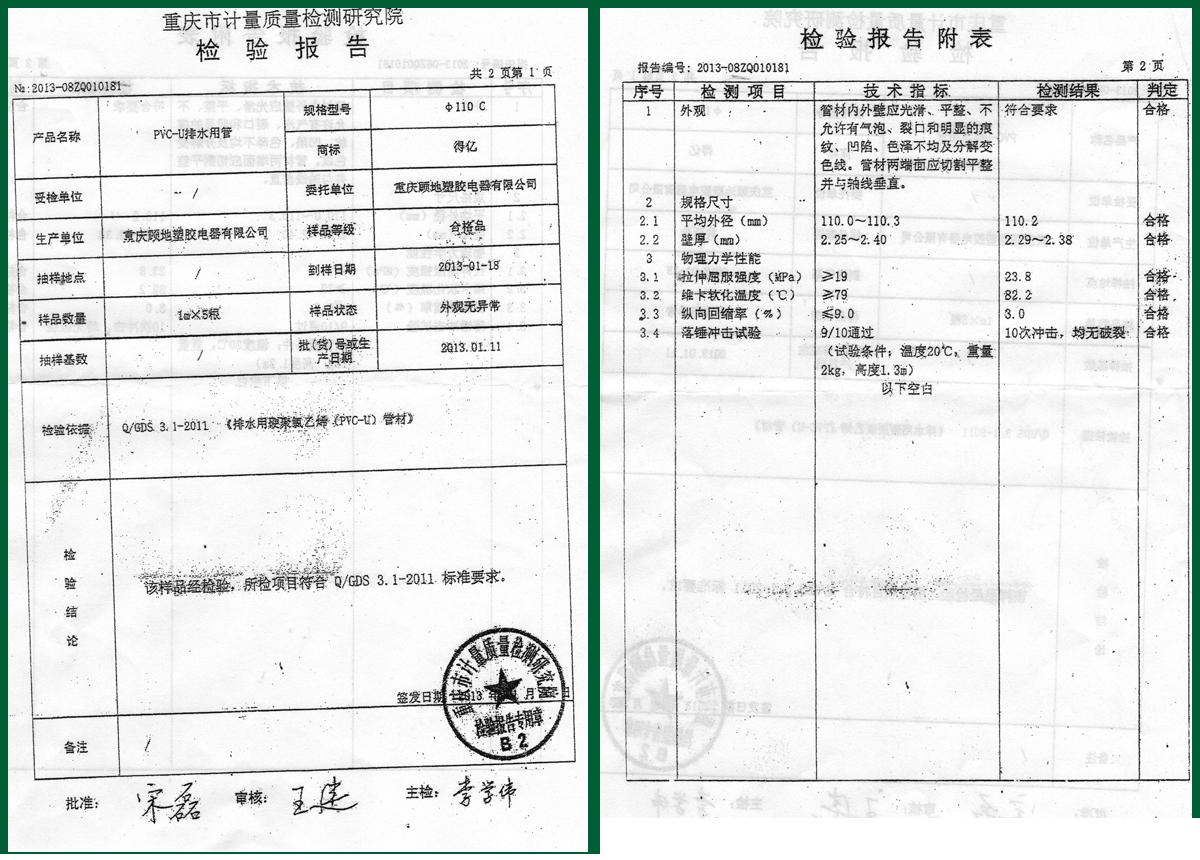 重庆市计量质量检测研究院
检验报告
共 2 页第 1 页
№:2013-08ZQ010181
产品名称 PVC-U排水用管 规格型号 φ110 C
商标 得亿
受检单位 / 委托单位 重庆顾地塑胶电器有限公司
生产单位 重庆顾地塑胶电器有限公司 样品等级 合格品
抽样地点 / 到样日期 2013-01-18
样品数量 1m×5根 样品状态 外观无异常
抽样基数 / 批(货)号或生产日期 2013.01.11
检验依据 Q/GDS 3.1-2011 《排水用硬聚氯乙烯(PVC-U)管材》
检验结论
该样品经检验，所检项目符合 Q/GDS 3.1-2011 标准要求。
重庆市计量质量检测研究院
检验报告专用章
B 2
签发日期 2013 年 月 日
备注 /
批准: 宋磊 审核: 王建 主检: 李学伟
检验报告附表
报告编号: 2013-08ZQ010181 第 2 页
序号 检测项目 技术指标 检测结果 判定
1 外观 管材内外壁应光滑、平整、不 符合要求 合格
允许有气泡、裂口和明显的痕
纹、凹陷、色泽不均及分解变
色线。管材两端面应切割平整
并与轴线垂直。
2 规格尺寸
2.1 平均外径(mm) 110.0～110.3 110.2 合格
2.2 壁厚(mm) 2.25～2.40 2.29～2.38 合格
3 物理力学性能
3.1 拉伸屈服强度(MPa) ≥19 23.8 合格
3.2 维卡软化温度(℃) ≥79 82.2 合格
3.3 纵向回缩率(%) ≤9.0 3.0 合格
3.4 落锤冲击试验 9/10通过 10次冲击，均无破裂 合格
(试验条件：温度20℃，重量
2kg，高度1.3m)
以下空白